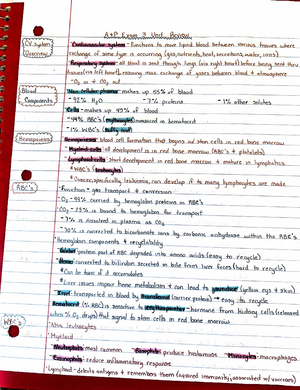 A+P Exam 3 Unit Review
CV System Overview
- Cardiovascular system - functions to move liquid blood between various tissues where
exchange of some type is occurring (gas, nutrients, heat, secretions, water, ions)
- Respiratory system - all blood is sent through lungs (via right heart) before being sent thru
tissues (via left heart), ensuring max exchange of gases between blood + atmosphere
- O₂ in + CO₂ out
Blood Components
- Non cellular plasma - makes up 55% of blood
- 92% H₂O - 7% proteins - 1% other solutes
- Cells - makes up 45% of blood
- 99% RBC's (erythrocytes) measured in hematocrit
- 1% WBC's (buffy coat)
Hematopoiesis
- Hematopoiesis: blood cell formation that begins w/ stem cells in red bone marrow
- Myeloid cells: all development is in red bone marrow (RBC's + platelets)
- Lymphoid cells: start development in red bone marrow + mature in lymphatics
* WBC's (leukocytes)
* Cancers, specifically leukemia, can develop if too many lymphocytes are made
RBC's
- Function - gas transport + conversion
- O₂ - 97% carried by hemoglobin proteins in RBC's
- CO₂ - 23% is bound to hemoglobin for transport
- 7% is dissolved in plasma as CO₂
- 70% is converted to bicarbonate ions by carbonic anhydrase within the RBC's
- Hemoglobin components + recyclability
- Globin: protein part of RBC degraded into amino acids (easy to recycle)
- Heme: converted to bilirubin secreted in bile from liver feces (hard to recycle)
* Can be toxic if it accumulates
* Liver issues impair heme metabolism + can lead to jaundice (yellow eyes + skin)
- Iron: transported in blood by transferrin (carrier protein) → easy to recycle
- Hematocrit (% RBC's) is sensitive to erythropoietin - hormone from kidney cells (released
when % O₂ drops) that signal to stem cells in red bone marrow
WBC's
- AKA leukocytes
- Myeloid
- Neutrophils: most common - Basophils: produce histamine - Monocytes: macrophages
- Eosinophils: reduce inflammatory response
- Lymphoid - detects antigens + remembers them (acquired immunity, associated w/ vaccines)